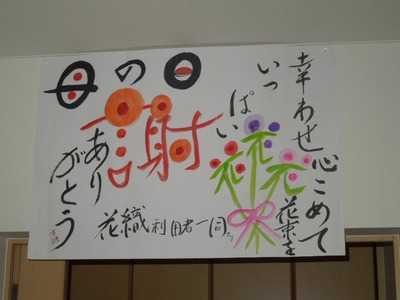 母の日
謝
ありがとう
幸わせ
いっぱい
心こめて
花束を
花花花
花織利用者一同